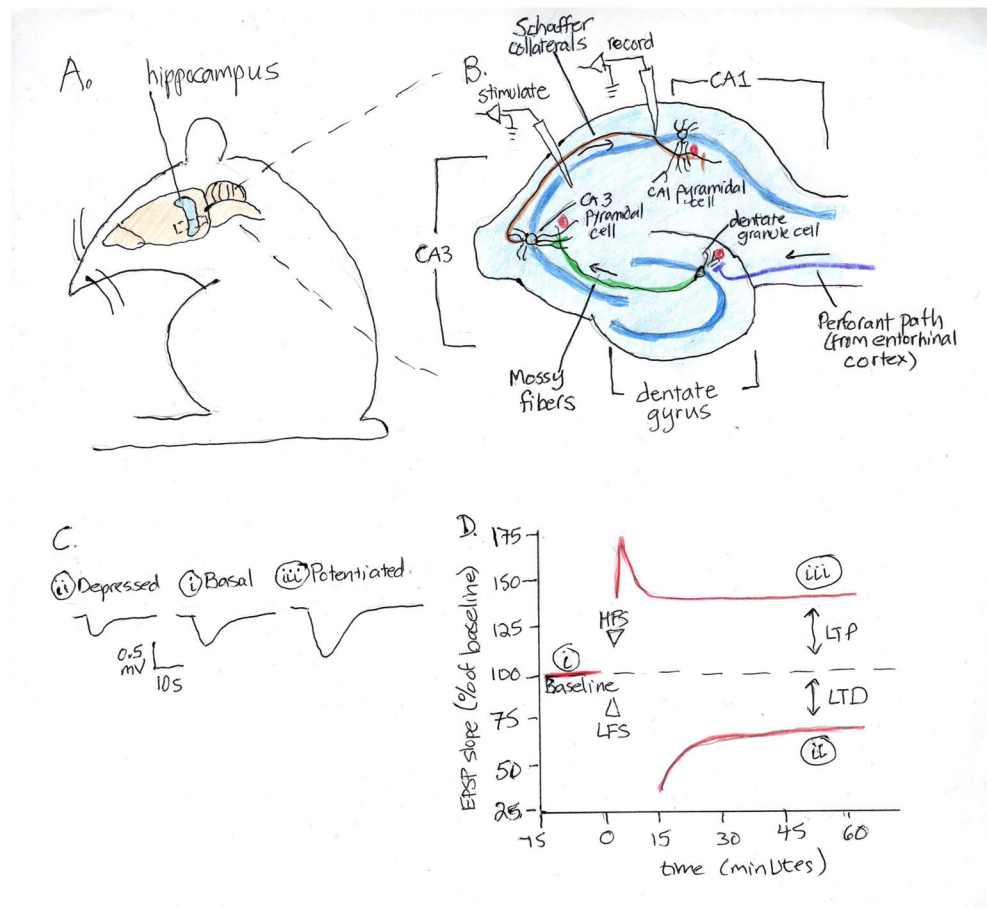 A.
hippocampus
B.
Schaffer
collaterals
record
stimulate
CA1
CA3
CA3
pyramidal
cell
CA1 pyramidal
cell
dentate
granule cell
Perforant path
(from entorhinal
cortex)
Mossy
fibers
dentate
gyrus
C.
ii Depressed
i Basal
iii Potentiated
0.5
mV
10s
D.
EPSP slope (% of baseline)
175
150
125
100
75
50
25
HFS
i
Baseline
LFS
iii
LTP
LTD
ii
-15 0 15 30 45 60
time (minutes)